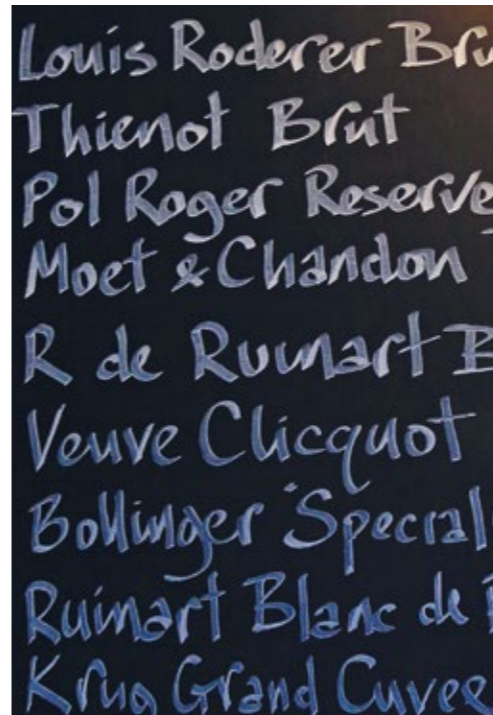 Louis Roderer Bru
Thienot Brut
Pol Roger Reserve
Moet & Chandon
R de Ruinart B
Veuve Clicquot
Bollinger Special
Ruinart Blanc de
Krug Grand Cuvee